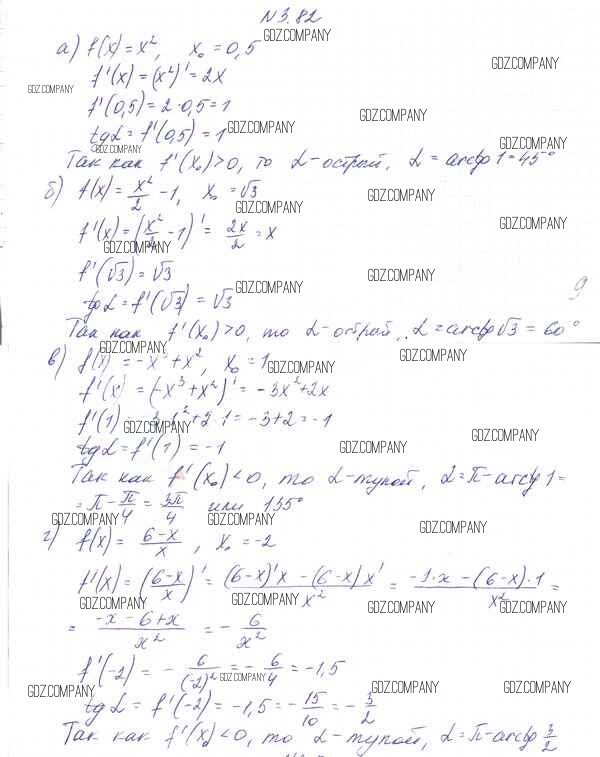 N 3.82
GDZ.COMPANY
а) f(x) = x², x₀ = 0,5
GDZ.COMPANY
f'(x) = (x²)' = 2x
GDZ.COMPANY
f'(0,5) = 2·0,5 = 1
GDZ.COMPANY
tg α = f'(0,5) = 1
GDZ.COMPANY
GDZ.COMPANY
GDZ.COMPANY
Так как f'(x₀) > 0, то α - острый, α = arctg 1 = 45°
б) f(x) = x²/2 - 1, x₀ = √3
GDZ.COMPANY
GDZ.COMPANY
f'(x) = (x²/2 - 1)' = 2x/2 = x
GDZ.COMPANY
GDZ.COMPANY
f'(√3) = √3
GDZ.COMPANY
GDZ.COMPANY
tg α = f'(√3) = √3
Так как f'(x₀) > 0, то α - острый, α = arctg √3 = 60°
GDZ.COMPANY
GDZ.COMPANY
в) f(x) = -x³ + x², x₀ = 1
GDZ.COMPANY
f'(x) = (-x³ + x²)' = -3x² + 2x
f'(1) = ² + 2·1 = -3 + 2 = -1
GDZ.COMPANY
GDZ.COMPANY
tg α = f'(1) = -1
GDZ.COMPANY
Так как f'(x₀) < 0, то α - тупой, α = π - arctg 1 =
= π - π/4 = 3π/4 или 135°
GDZ.COMPANY
GDZ.COMPANY
GDZ.COMPANY
г) f(x) = 6-x/x, x₀ = -2
f'(x) = (6-x/x)' = (6-x)'x - (6-x)x'/x² = -1·x - (6-x)·1/x² =
GDZ.COMPANY
GDZ.COMPANY
GDZ.COMPANY
GDZ.COMPANY
= -x-6+x/x² = -6/x²
f'(-2) = -6/(-2)² = -6/4 = -1,5
GDZ.COMPANY
GDZ.COMPANY
GDZ.COMPANY
GDZ.COMPANY
tg α = f'(-2) = -1,5 = -15/10 = -3/2
Так как f'(x₀) < 0, то α - тупой, α = π - arctg 3/2